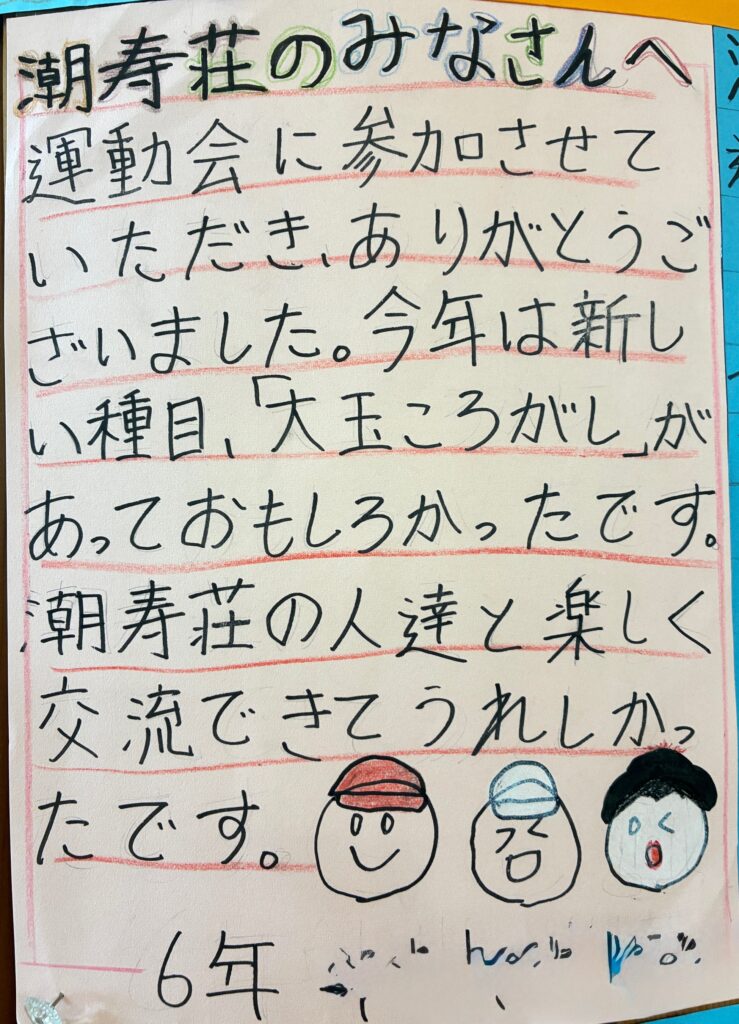 潮寿荘のみなさんへ
運動会に参加させて
いただき、ありがとうご
ざいました。今年は新し
い種目、「大玉ころがし」が
あっておもしろかったです。
潮寿荘の人達と楽しく
交流できてうれしかっ
たです。
6年